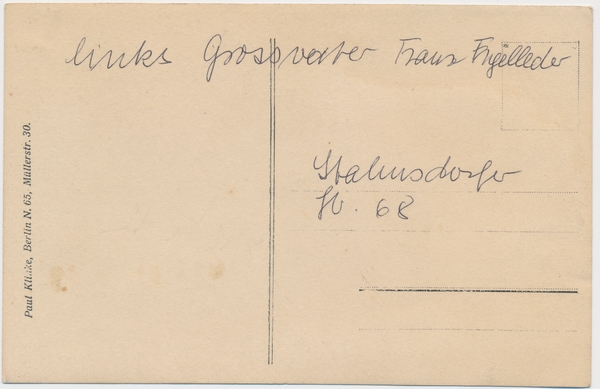 links Grossvater Franz Figelleder
Stahnsdorfer
Str. 68
Paul Klinke, Berlin N. 65, Müllerstr. 30.